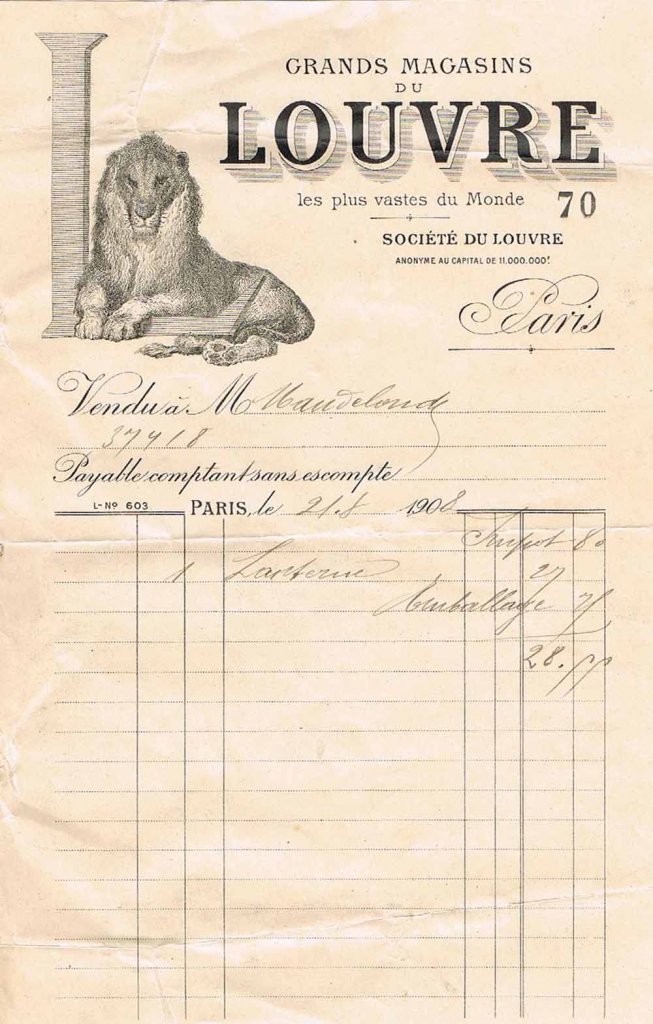 GRANDS MAGASINS
DU
LOUVRE
les plus vastes du Monde 70
SOCIÉTÉ DU LOUVRE
ANONYME AU CAPITAL DE 11.000.000f.
Paris
Vendu à M
37418
Payable comptant sans escompte
L-Nº 603 PARIS, le 21.8 1908
80
1 Lanterne 27
Emballage 75
28.55